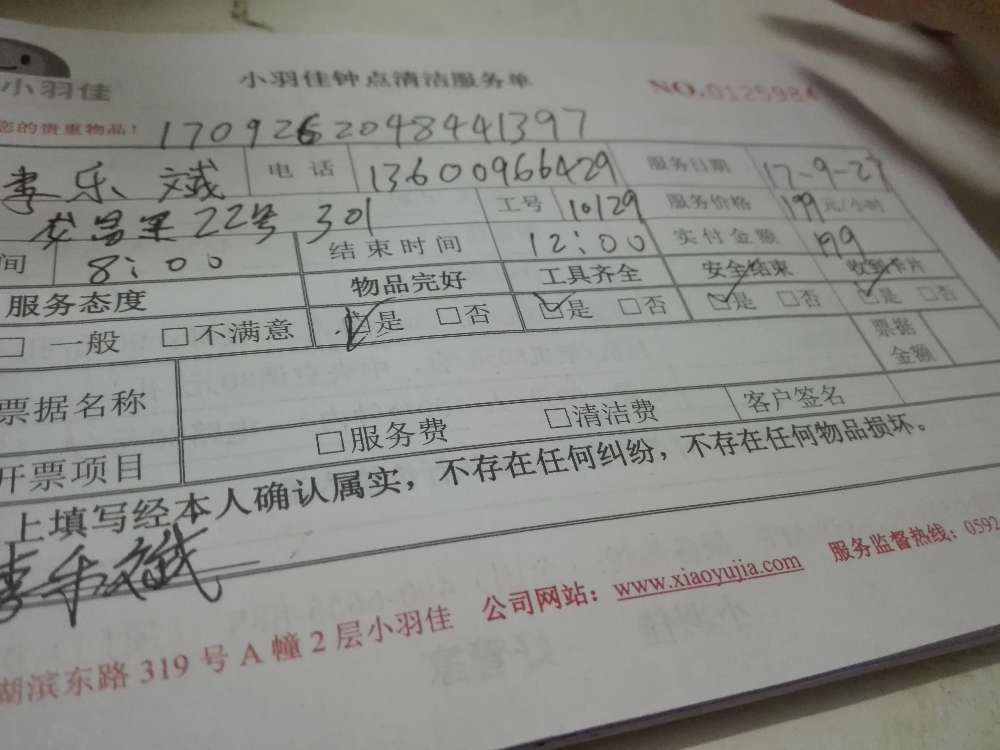 小羽佳 小羽佳钟点清洁服务单 NO.0125984
您的贵重物品! 17092620484441397
李乐斌 电话 13600966429 服务日期 17-9-27
龙昌里22号 301 工号 10129 服务价格 199元/小时
间 8:00 结束时间 12:00 实付金额 199
服务态度 物品完好 工具齐全 安全结束 收到卡片
□ 一般 □不满意 □是 □否 □是 □否 □是 □否 □是 □否
票据名称 票据金额
开票项目 □服务费 □清洁费 客户签名
上填写经本人确认属实,不存在任何纠纷,不存在任何物品损坏。
李乐斌
湖滨东路 319 号 A 幢 2 层小羽佳 公司网站:www.xiaoyujia.com 服务监督热线:0592